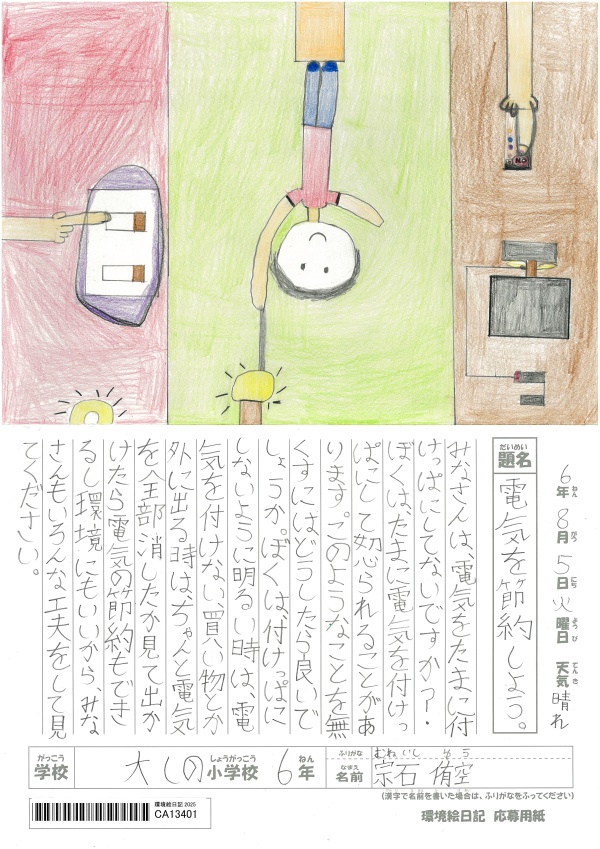 6年 8月 5日 火曜日 天気 晴れ
ねん がつ にち ようび てんき
だいめい
題名
電気を節約しよう。
みなさんは、電気をたまに付
けっぱにしてないですか?・
ぼくは、たまに電気を付けっ
ぱにして怒られることがあ
ります。このようなことを無
くすにはどうしたら良いで
しょうか。ぼくは、付けっぱに
しないように明るい時は、電
気を付けない、買い物とか
外に出る時は、ちゃんと電気
を全部消したか見て出か
けたら電気の節約もでき
るし環境にもいいから、みな
さんもいろんな工夫をして見
てください。
がっこう
学校
大しの小学校 6年
しょうがっこう ねん
ふりがな
むねいし ゆう
なまえ
名前
宗石 侑空
(漢字で名前を書いた場合は、ふりがなをふってください)
環境絵日記 2025
CA13401
環境絵日記 応募用紙